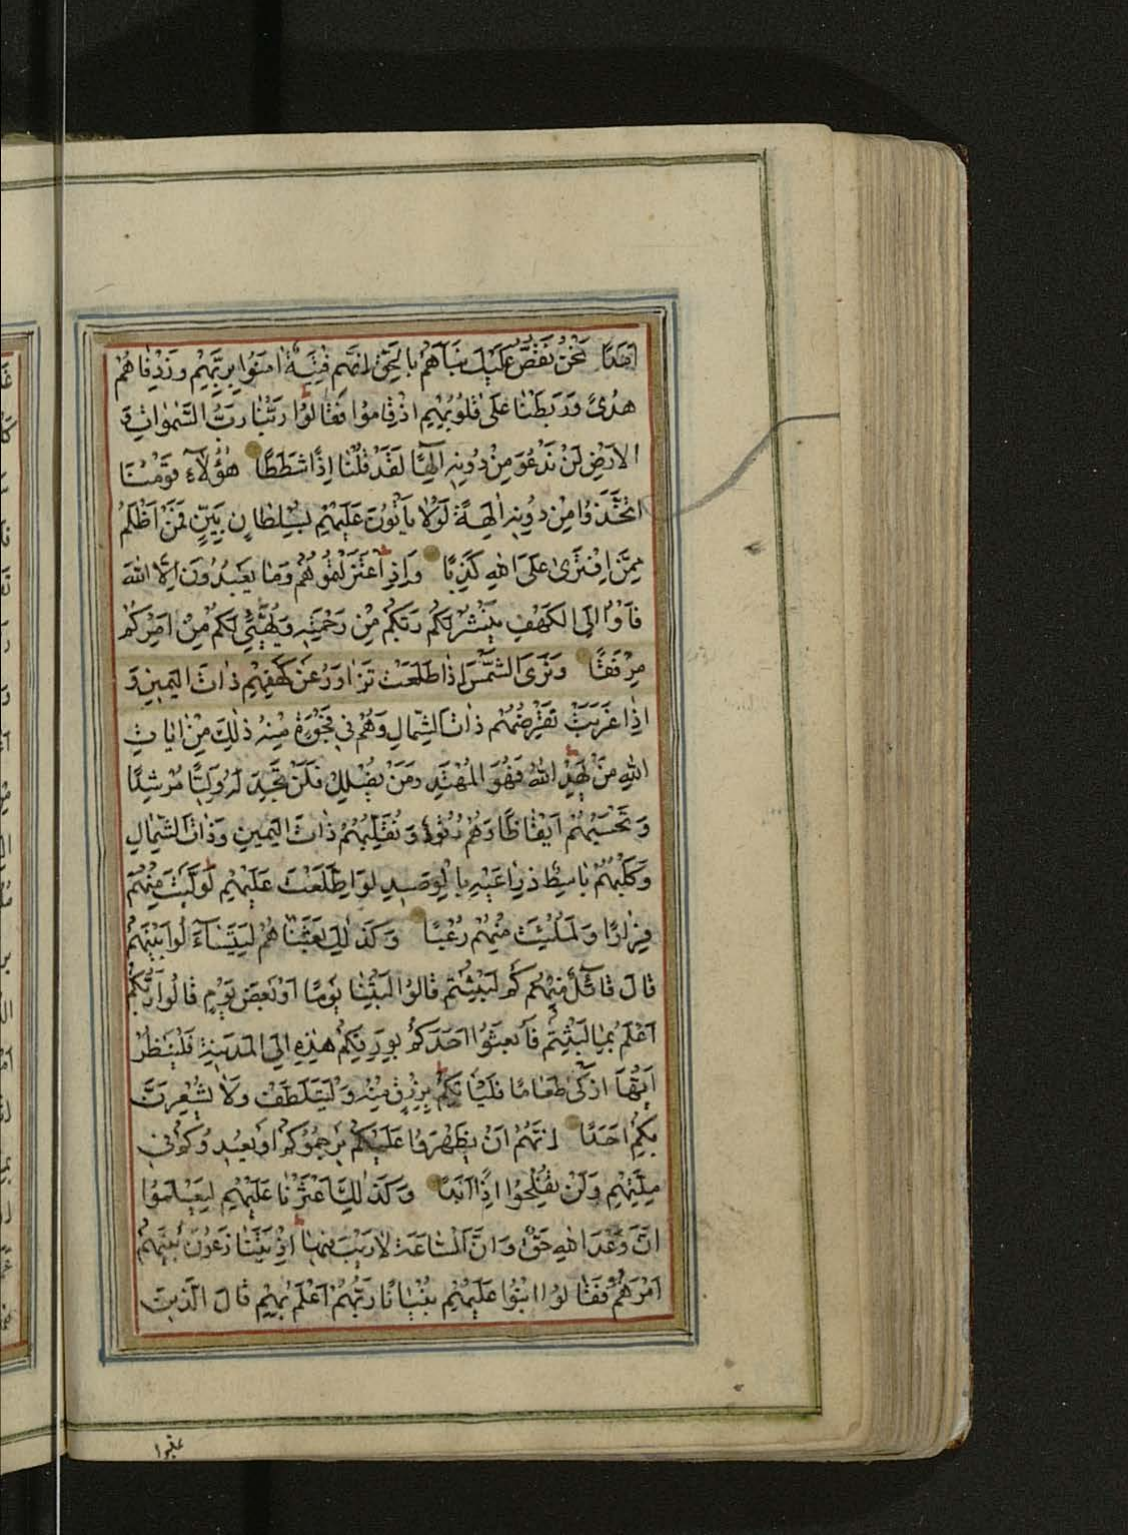 اَمَدًا نَحْنُ نَقُصُّ عَلَيْكَ نَبَاَهُمْ بِالْحَقِّ اِنَّهُمْ فِتْيَةٌ اٰمَنُوا بِرَبِّهِمْ وَزِدْنَاهُمْ
هُدًى وَرَبَطْنَا عَلٰى قُلُوبِهِمْ اِذْ قَامُوا فَقَالُوا رَبُّنَا رَبُّ السَّمٰوَاتِ وَ
الْاَرْضِ لَنْ نَدْعُوَ مِنْ دُونِهِ اِلٰهًا لَقَدْ قُلْنَا اِذًا شَطَطًا هٰؤُلَاءِ قَوْمُنَا
اتَّخَذُوا مِنْ دُونِهِ اٰلِهَةً لَوْلَا يَاْتُونَ عَلَيْهِمْ بِسُلْطَانٍ بَيِّنٍ فَمَنْ اَظْلَمُ
مِمَّنِ افْتَرٰى عَلَى اللهِ كَذِبًا وَاِذِ اعْتَزَلْتُمُوهُمْ وَمَا يَعْبُدُونَ اِلَّا اللهَ
فَاْوُا اِلَى الْكَهْفِ يَنْشُرْ لَكُمْ رَبُّكُمْ مِنْ رَحْمَتِهِ وَيُهَيِّئْ لَكُمْ مِنْ اَمْرِكُمْ
مِرْفَقًا وَتَرَى الشَّمْسَ اِذَا طَلَعَتْ تَزَاوَرُ عَنْ كَهْفِهِمْ ذَاتَ الْيَمِينِ وَ
اِذَا غَرَبَتْ تَقْرِضُهُمْ ذَاتَ الشِّمَالِ وَهُمْ فِي فَجْوَةٍ مِنْهُ ذٰلِكَ مِنْ اٰيَاتِ
اللهِ مَنْ يَهْدِ اللهُ فَهُوَ الْمُهْتَدِ وَمَنْ يُضْلِلْ فَلَنْ تَجِدَ لَهُ وَلِيًّا مُرْشِدًا
وَتَحْسَبُهُمْ اَيْقَاظًا وَهُمْ رُقُودٌ وَنُقَلِّبُهُمْ ذَاتَ الْيَمِينِ وَذَاتَ الشِّمَالِ
وَكَلْبُهُمْ بَاسِطٌ ذِرَاعَيْهِ بِالْوَصِيدِ لَوِ اطَّلَعْتَ عَلَيْهِمْ لَوَلَّيْتَ مِنْهُمْ
فِرَارًا وَلَمُلِئْتَ مِنْهُمْ رُعْبًا وَكَذٰلِكَ بَعَثْنَاهُمْ لِيَتَسَاءَلُوا بَيْنَهُمْ
قَالَ قَائِلٌ مِنْهُمْ كَمْ لَبِثْتُمْ قَالُوا لَبِثْنَا يَوْمًا اَوْ بَعْضَ يَوْمٍ قَالُوا رَبُّكُمْ
اَعْلَمُ بِمَا لَبِثْتُمْ فَابْعَثُوا اَحَدَكُمْ بِوَرِقِكُمْ هٰذِهِ اِلَى الْمَدِينَةِ فَلْيَنْظُرْ
اَيُّهَا اَزْكٰى طَعَامًا فَلْيَاْتِكُمْ بِرِزْقٍ مِنْهُ وَلْيَتَلَطَّفْ وَلَا يُشْعِرَنَّ
بِكُمْ اَحَدًا اِنَّهُمْ اِنْ يَظْهَرُوا عَلَيْكُمْ يَرْجُمُوكُمْ اَوْ يُعِيدُوكُمْ فِي
مِلَّتِهِمْ وَلَنْ تُفْلِحُوا اِذًا اَبَدًا وَكَذٰلِكَ اَعْثَرْنَا عَلَيْهِمْ لِيَعْلَمُوا
اَنَّ وَعْدَ اللهِ حَقٌّ وَاَنَّ السَّاعَةَ لَا رَيْبَ فِيهَا اِذْ يَتَنَازَعُونَ بَيْنَهُمْ
اَمْرَهُمْ فَقَالُوا ابْنُوا عَلَيْهِمْ بُنْيَانًا رَبُّهُمْ اَعْلَمُ بِهِمْ قَالَ الَّذِينَ
غلبوا